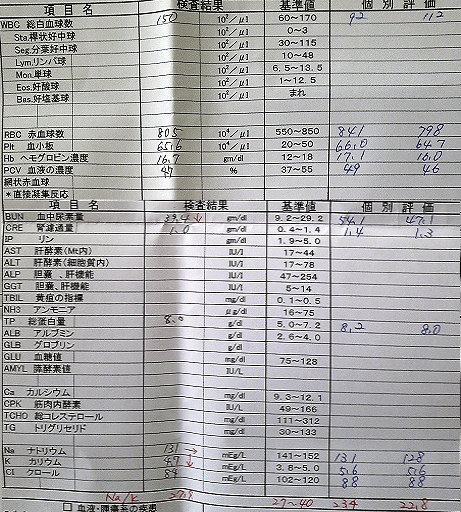 項 目 名 検査結果 基準値 個 別 評 価
WBC 総白血球数 150 10²／μl 60〜170 92 112
Sta.桿状好中球 10²／μl 0〜3
Seg.分葉好中球 10²／μl 30〜115
Lym.リンパ球 10²／μl 10〜48
Mon.単球 10²／μl 6.5〜13.5
Eos.好酸球 10²／μl 1〜12.5
Bas.好塩基球 10²／μl まれ
RBC 赤血球数 805 10⁴／μl 550〜850 841 798
Plt 血小板 65.6 10⁴／μl 20〜50 66.0 64.7
Hb ヘモグロビン濃度 16.7 gm/dl 12〜18 17.1 16.0
PCV 血液の濃度 47 % 37〜55 49 46
網状赤血球
＊直接凝集反応
項 目 名 検査結果 基準値 個 別 評 価
BUN 血中尿素量 39.4↓ gm/dl 9.2〜29.2 47.1
CRE 腎濾過量 1.0 gm/dl 0.4〜1.4 1.4 1.3
IP リン gm/dl 1.9〜5.0
AST 肝酵素(Mt内) IU/l 17〜44
ALT 肝酵素(細胞質内) IU/l 17〜78
ALP 胆嚢、肝機能 IU/l 47〜254
GGT 胆嚢、肝機能 IU/l 5〜14
TBIL 黄疸の指標 mg/dl 0.1〜0.5
NH3 アンモニア μg/dl 16〜75
TP 総蛋白量 8.0 g/dl 5.0〜7.2 8.2 8.0
ALB アルブミン g/dl 2.6〜4.0
GLB グロブリン g/dl
GLU 血糖値 mg/dl 75〜128
AMYL 膵酵素値 IU/L
Ca カルシウム mg/dl 9.3〜12.1
CPK 筋肉内酵素 IU/L 49〜166
TCHO 総コレステロール mg/dl 111〜312
TG トリグリセリド mg/dl 30〜133
Na ナトリウム 131→ mEg/L 141〜152 131 128
K カリウム 4.7↓ mEg/L 3.8〜5.0 5.6 5.6
Cl クロール 84 mEg/L 102〜120 88 88
Na/K 27.9 27〜40 23.4 22.8
□ 血液・腫瘍系の疾患